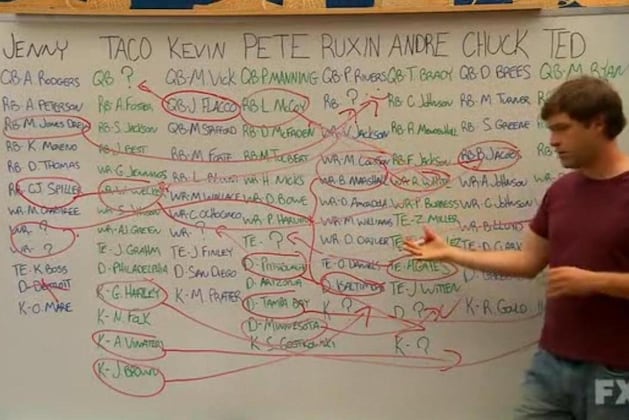 JENNY
QB-A RODGERS
RB-A. PETERSON
RB-M. JONES DREW
RB-K. MORENO
RB-D. THOMAS
RB-CJ SPILLER
WR-M. CRABTREE
WR-?
WR-?
TE-K BOSS
D-DETROIT
K-O. MARE
TACO
QB ?
RB-A. FOSTER
RB-S. JACKSON
J. BEST
WR-G. JENNINGS
WR-W. WELKER
WR-S.
WR-AJ GREEN
TE-J. GRAHM
D-PHILADELPHIA
K-G. HARTLEY
K-N. FOLK
K-A. VINATERI
K-J. BROWN
KEVIN
QB-M. VICK
QB-J. FLACCO
QB-M. STAFFORD
RB-M. FORTE
RB-L. BLOUNT
WR-M. WALLACE
WR-C. OCHOCINCO
WR-?
TE-J. FINLEY
D-SAN DIEGO
K-M. PRATER
PETE
QB-P. MANNING
RB-L. MCCOY
RB-D. MCFADEN
RB-M. TOLBERT
WR-H. NICKS
WR-D. BOWE
WR-P. HARVIN
TE-?
D-PITTSBURGH
D-ARIZONA
D-TAMPA BAY
D-MINNESOTA
K-S. GOSTKOWSKI
RUXIN
QB-P. RIVERS
RB-?
WR-V. JACKSON
WR-M. COLSTON
WR-B. MARSHALL
WR-D. AMENDOLA
WR-M. WILLIAMS
WR-D. DRIVER
TE-O. DANIELS
D. BALTIMORE
K ?
ANDRE
QB-T. BRADY
RB-C. JOHNSON
RB-R. MENDENHALL
RB-F. JACKSON
WR-R. WHITE
WR-P. BURRESS
TE-Z. MILLER
TE-A. GATES
TE-J. WITTEN
D ?
K-?
CHUCK
QB-D. BREES
RB-M. TURNER
RB-S. GREENE
RB-B. JACOBS
WR-A. JOHNSON
WR-C. JOHNSON
WR-B. LLOYD
TE-D. CLARK
K-R. GOULD
TED
QB-M. RYAN
RB
FX